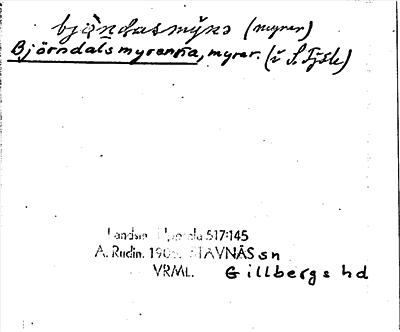 (myrar)
Björndalsmyrarna, myrar. (i S. Fjöle)
Landsm. Uppsala 517:145
A. Rudin. 190 STAVNÄS sn
VRML. Gillbergs hd